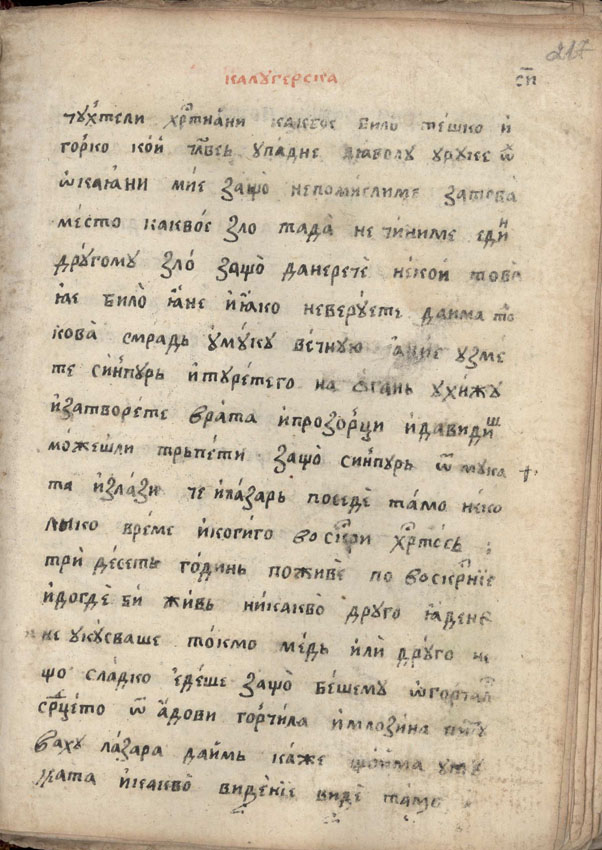 217
КАЛꙊГЕРСКА си҃
чꙋхте́ли хрⷭ҇тиа́ни какво́е било̀ те́шко и҆
го́рко ко́й чл҃вѣкь упа́дне дїа́волу у руке ѿ
ѡ҆каꙗ́ни мие защо̀ непоми́слиме затова̀
ме́сто какво́е ꙁло тада̀ не чи́ниме еди́н
дрꙋ́гому ꙁло̀ защо̀ данеретѐ не́кои това̀
ꙗ҆е било̀ и҆ако неверꙋ́ете даима та
кова̀ смрадь у мꙋку ве́чную а҆ни́е узме́
те си́нпурь и҆турѐтего на о́гань у хи́жꙋ
и҆затворѐте врата̀ и҆про́ꙁорци и҆давиди́ш
мо́жешли трьпе́ти защо̀ си́нпурь ѿ мука
та и҆ꙁла́ꙁи че и҆ла́ꙁарь поседѐ та́мо не́ко
лико вре́ме и҆когиго воскр҃си хрⷭ҇то́сь
три́ де́сеть го́динь поживѐ по воскрⷭ҇ние
и҆догдѐ би жи́вь никакво̀ дрꙋ́го ꙗ҆денѐ
не уку́сваше то́кмо ме́дь и҆лѝ дрꙋ́го не
що сла́дко е҆де́ше защо̀ бе́шему ѡ҆горча́л
срⷣце́то ѿ а҆́дови горчила̀ и҆мло́ꙁина питу
ваху ла́ꙁара да и҆мь ка́же що и҆ма у му
ката и҆какво̀ виде́ние видѐ та́мо